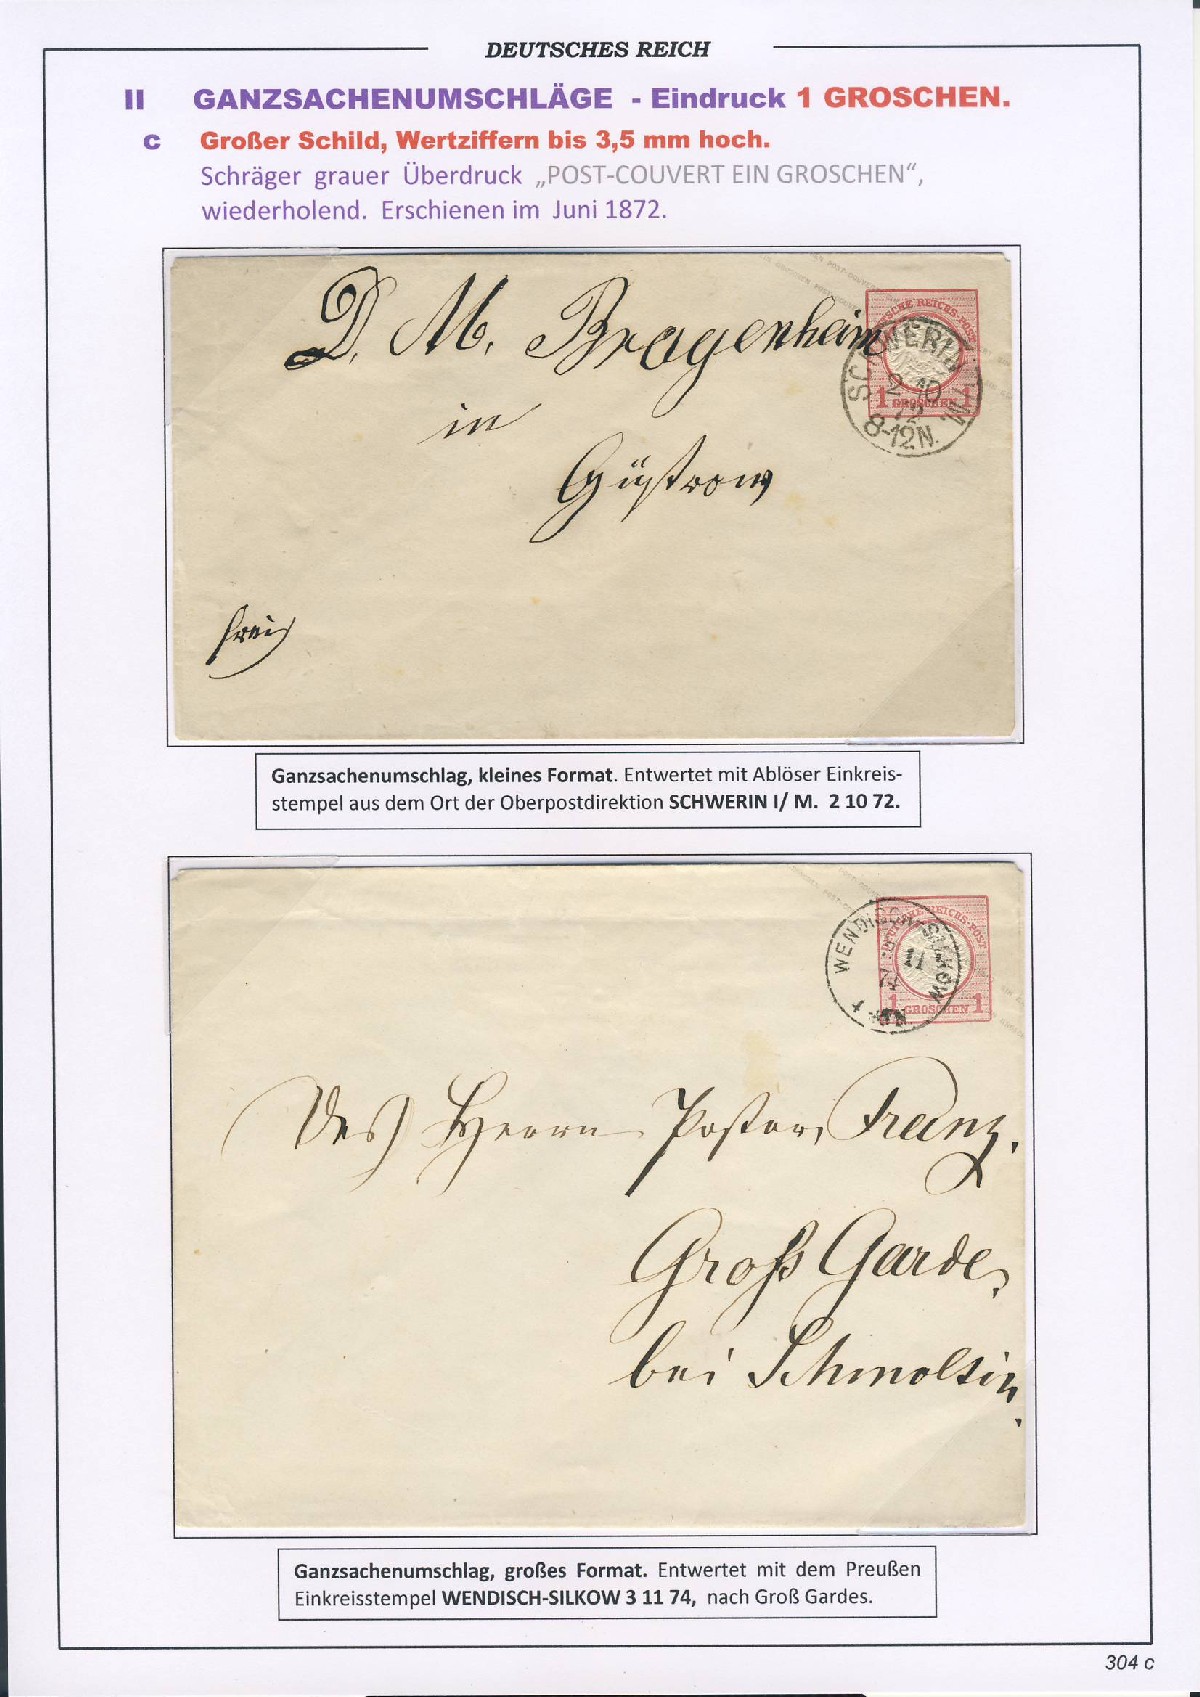 DEUTSCHES REICH
II GANZSACHENUMSCHLÄGE - Eindruck 1 GROSCHEN.
c Großer Schild, Wertziffern bis 3,5 mm hoch.
Schräger grauer Überdruck „POST-COUVERT EIN GROSCHEN“,
wiederholend. Erschienen im Juni 1872.
DEUTSCHE REICHS-POST
1 GROSCHEN 1
SCHWERIN I/M.
2 10
72
8-12N.
D. M. Bragenheim
in
Güstrow
frei
Ganzsachenumschlag, kleines Format. Entwertet mit Ablöser Einkreis-
stempel aus dem Ort der Oberpostdirektion SCHWERIN I/ M. 2 10 72.
DEUTSCHE REICHS-POST
1 GROSCHEN 1
WENDISCH-SILKOW
11
74
Des Herrn Pastor Franz.
Groß Garde,
bei Schmolsin.
Ganzsachenumschlag, großes Format. Entwertet mit dem Preußen
Einkreisstempel WENDISCH-SILKOW 3 11 74, nach Groß Gardes.
304 c